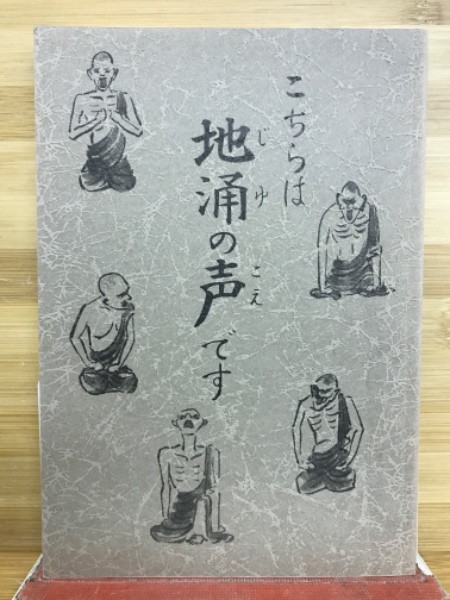 こちらは
地涌の声です
じゆ
こえ